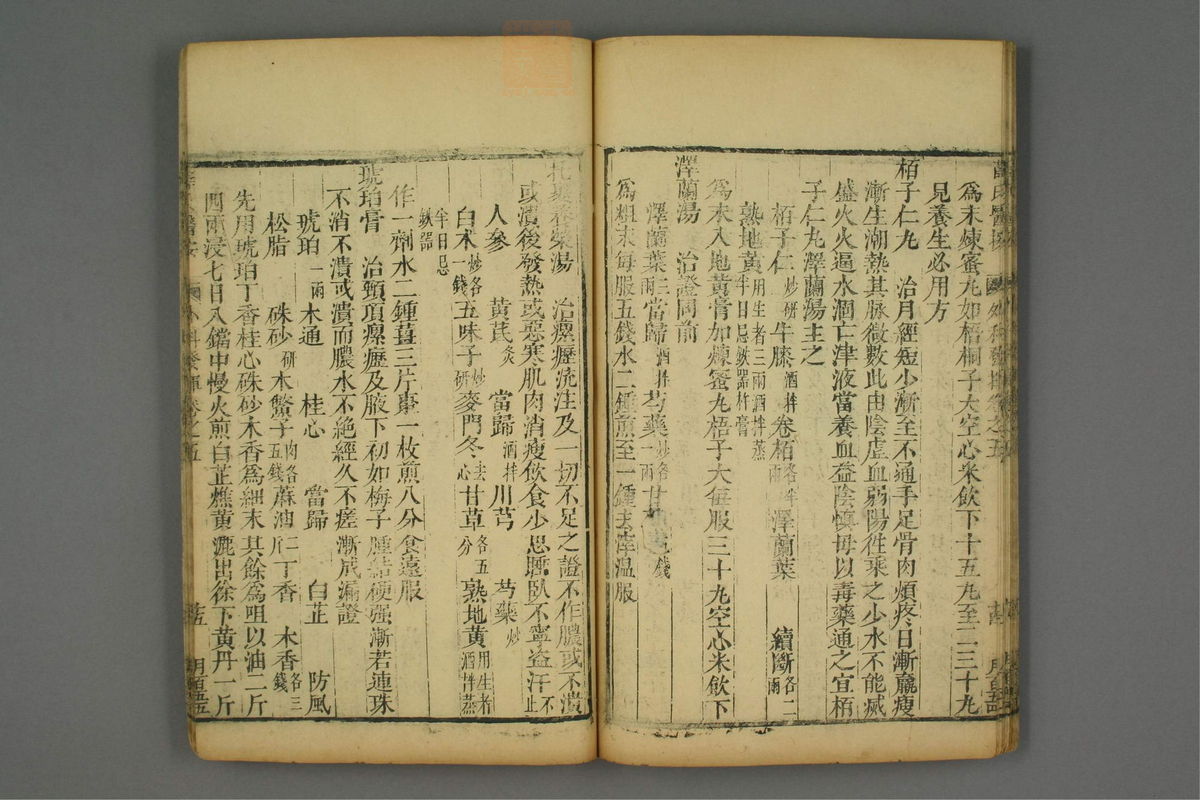 爲末煉蜜丸如梧桐子大空心米飮下十五丸至二三十丸
見養生必用方
栢子仁丸　治月經短少漸至不通手足骨肉煩疼日漸羸瘦
漸生潮熱其脉微數此由陰虛血弱陽徃乘之少水不能滅
盛火火逼水涸亡津液當養血益陰愼毋以毒藥通之宜栢
子仁丸澤蘭湯主之
栢子仁炒研牛膝酒拌卷栢各半兩澤蘭葉　續斷各二兩
熟地黃用生者三兩酒拌蒸半日忌鉄器杵膏
爲末入地黃膏加煉蜜丸梧子大每服三十丸空心米飮下
澤蘭湯　治證同前
澤蘭葉三兩當歸酒拌芍藥炒各一兩甘草錢
爲粗末每服五錢水二鍾煎至一鍾去滓温服
榮湯　治瘰癧流注及一切不足之證不作膿或不潰
或潰後發熱或惡寒肌肉消瘦飮食少思睡臥不寧盜汗不止
人參　黃芪炙　當歸酒拌　川芎　芍藥炒
白朮炒各一錢五味子炒研麥門冬去心甘草各五分熟地黃用生者酒拌蒸
半日忌鉄器
作一劑水二鍾薑三片棗一枚煎八分食遠服
琥珀膏　治頸項瘰癧及腋下初如梅子腫結硬强漸若連珠
不消不潰或潰而膿水不絕經久不瘥漸成漏證
琥珀一兩木通　桂心　當歸　白芷　防風
松脂　硃砂研木鱉子肉各五錢蔴油二斤丁香　木香各三錢
先用琥珀丁香桂心硃砂木香爲細末其餘㕮咀以油二斤
四兩浸七日入鐺中慢火煎白芷燋黃漉出徐下黃丹一斤